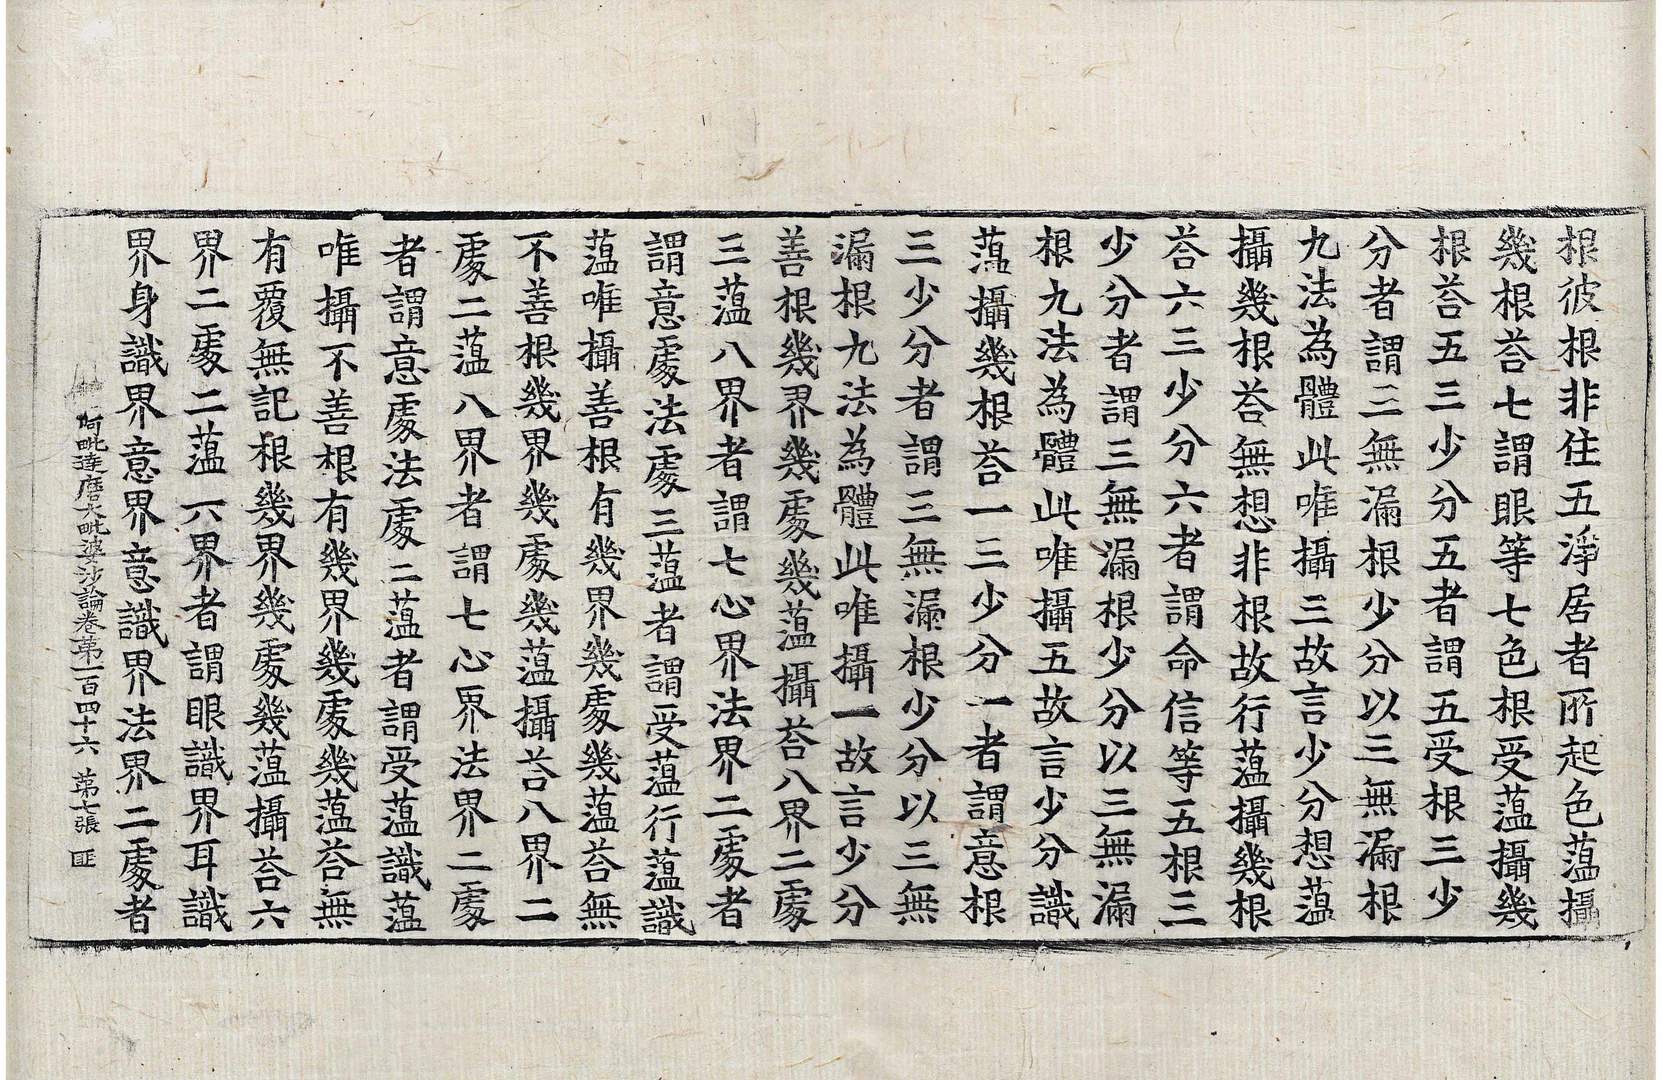 根彼根非住五淨居者所起色蕰攝
幾根荅七謂眼等七色根受蕰攝幾
根荅五三少分五者謂五受根三少
分者謂三無漏根少分以三無漏根
九法為體此唯攝三故言少分想蕰
攝幾根荅無想非根故行蕰攝幾根
荅六三少分六者謂命信等五根三
少分者謂三無漏根少分以三無漏
根九法為體此唯攝五故言少分識
蕰攝幾根荅一三少分一者謂意根
三少分者謂三無漏根少分以三無
漏根九法為體此唯攝一故言少分
善根幾界幾處幾蕰攝荅八界二處
三蕰八界者謂七心界法界二處者
謂意處法處三蕰者謂受蕰行蕰識
蕰唯攝善根有幾界幾處幾蕰荅無
不善根幾界幾處幾蕰攝荅八界二
處二蕰八界者謂七心界法界二處
者謂意處法處二蕰者謂受蕰識蕰
唯攝不善根有幾界幾處幾蕰荅無
有覆無記根幾界幾處幾蕰攝荅六
界二處二蕰六界者謂眼識界耳識
界身識界意界意識界法界二處者
阿毗達磨大毗婆沙論卷第一百四十六 第七張 匪